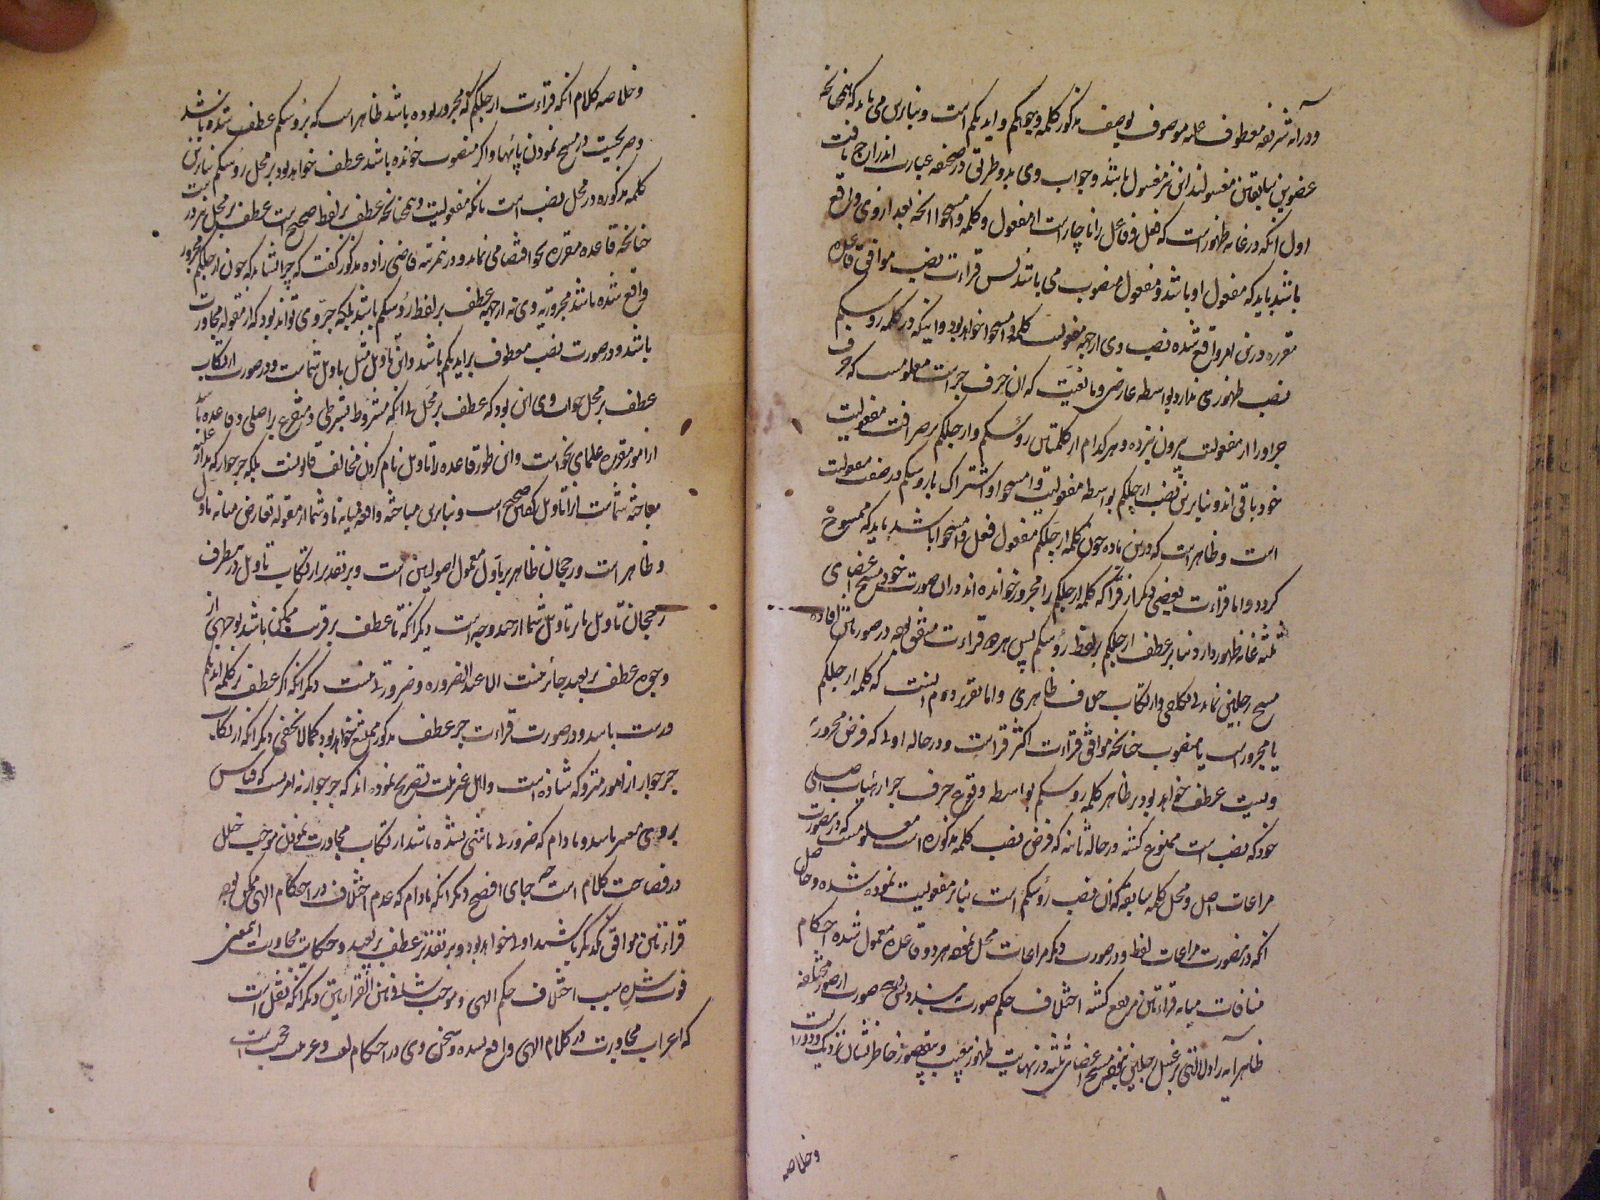 و در آیه شریفه معطوف علیه موصوف بوصف مذکور کلمه وجوهکم و ایدیکم است و بنابرین می باید که همچنانچه
عضوین سابقتین مغسول اند این نیز مغسول باشد و جواب وی بدو طریق در صحیفه عبارت اندراج یافت
اول آنکه در غایه ظهور است که فعل و فاعل را ناچار است از مفعول و کلمه وامسحوا آنچه بعد از وی واقع
باشد باید که مفعول او باشد و مفعول منصوب می باشد پس قراءت نصب موافق قاعده
مقرره درین امر واقع شده نصب وی از جهه مفعولیت کلمه وامسحوا خواهد بود و اینکه در کلمه رؤسکم
نصب ظهوری ندارد بواسطه عارض و مانعیت که آن حرف جر است معلومست که حرف
جر او را از مفعولیت بیرون نبرده و هر کدام از کلمتین رؤسکم و ارجلکم بر صرافت مفعولیت
خود باقی اند و بنابرین نصب ارجلکم بواسطه مفعولیت وامسحوا و اشتراک با رؤسکم در صفت مفعولیت
است و ظاهر است که درین ماده چون کلمه ارجلکم مفعول فعل وامسحوا باشد باید که ممسوح
گردد و اما قراءت بعضی دیگر از قرا که کلمه ارجلکم را مجرور خوانده اند در آن صورت خود مسح اعضای
ثلثه غایه ظهور دارد بنابر عطف ارجلکم بر لفظ رؤسکم پس هر دو قراءت متفق بوجه در صورتین افاده
مسح رجلین نماید بی تکلفی و ارتکاب خلاف ظاهری و اما تقریر دوم اینست که کلمه ارجلکم
یا مجرور است یا منصوب چنانچه موافق قراءت اکثر قراست و در حاله اولی که فرض مجرور
ویست عطف خواهد بود بر ظاهر کلمه رؤسکم بواسطه وقوع حرف جر از اعراب اصلی
خود که نصب است ممنوع گشته و در حاله ثانیه که فرض نصب کلمه مذکوره است معلومست که درین صورت
مراعات اصل و محل کلمه سابقه که آن نصب رؤسکم است بنابر مفعولیت نموده شده و حاصل
آنکه درین صورت مراعات لفظ و در صورت دیگر مراعات محل نموده هر دو قاعده معمول شده احکام
منافات میانه قراءتین مرتفع گشته اختلاف حکم صورت نبندد و بهیچ صورت از صور مختلفه
ظاهر آیه را دلالتی بر غسل رجلین نیست مسح اعضای ثلثه در نهایت ظهور
و خلاصه
و خلاصه کلام آنکه قراءت ارجلکم که مجرور بوده باشد ظاهر است که برؤسکم عطف شده باشد
و صریحیست در مسح نمودن پایها و اگر منصوب خوانده باشد عطف خواهد بود بر محل رؤسکم بنابرین
کلمه مذکوره در محل نصب است بآنکه مفعولیت و همچنانچه عطف بر لفظ صحیح است عطف بر محل نیز درست
چنانچه قاعده مقرره نحو اقتضا می نماید و درین مرتبه قاضی زاده مذکور گفت که چرا نشاید که چون ارجلکم مجرور
واقع شده باشد مجروریه وی نه از جهه عطف بر لفظ رؤسکم باشد بلکه جر وی تواند بود که از مقوله مجاورت
باشد و در صورت نصب معطوف بر ایدیکم باشد و این تاویل مثل تاویل شماست و در صورت ارتکاب
عطف بر محل جواب وی این بود که عطف بر محل نه آنکه مشروط بشرطی و متفرع بر اصلی و قاعده باشد
از امور مقرره علمای نحو است و این طور قاعده را تاویل نام کردن مخالف قانونست بلکه جر جوار که مدار
معارضه شماست از تاویل کفتن صحیح است و بنابرین مباحثه واقعه میانه ما و شما از مقوله تعارض میانه ماول
و ظاهر است و رجحان ظاهر بر ماول معمول اصولیین است و بر تقدیر ارتکاب تاویل در هر طرف
رجحان تاویل ما بر تاویل شما از چند وجه است دیگر آنکه تا عطف بر قریب ممکن باشد بوجهی از
وجوه عطف بر بعید جائز نیست الا عند الضروره و ضرورتی نیست دیگر آنکه اگر عطف بر کلمه ایدیکم
درست باشد در صورت قراءت جر عطف مذکور ممتنع خواهد بود کما لا یخفی دیگر آنکه ارتکاب
جر جوار از امور متروکه شاذه است و اهل عربیت تصریح نموده اند که جر جوار نه امریست که قیاس
بر وی معتبر باشد و مادام که ضرورتی باعث نشده باشد ارتکاب مجاورت نمودن موجب خلل
در فصاحت کلام است چه جای افصح دیگر آنکه مادام که عدم اختلاف در احکام الهی ممکن بود
قراءتین موافق یکدیگر باشند اولی خواهد بود و بر تقدیر عطف بر بعید و حکایت مجاورت این معنی
فوت شده سبب اختلاف حکم الهی و موجب منافات بین القراءتین دیگر آنکه نقل است
که اعراب مجاورت در کلام الهی واقع نشده و سخن وی در احکام لغت و عربیت حجت است